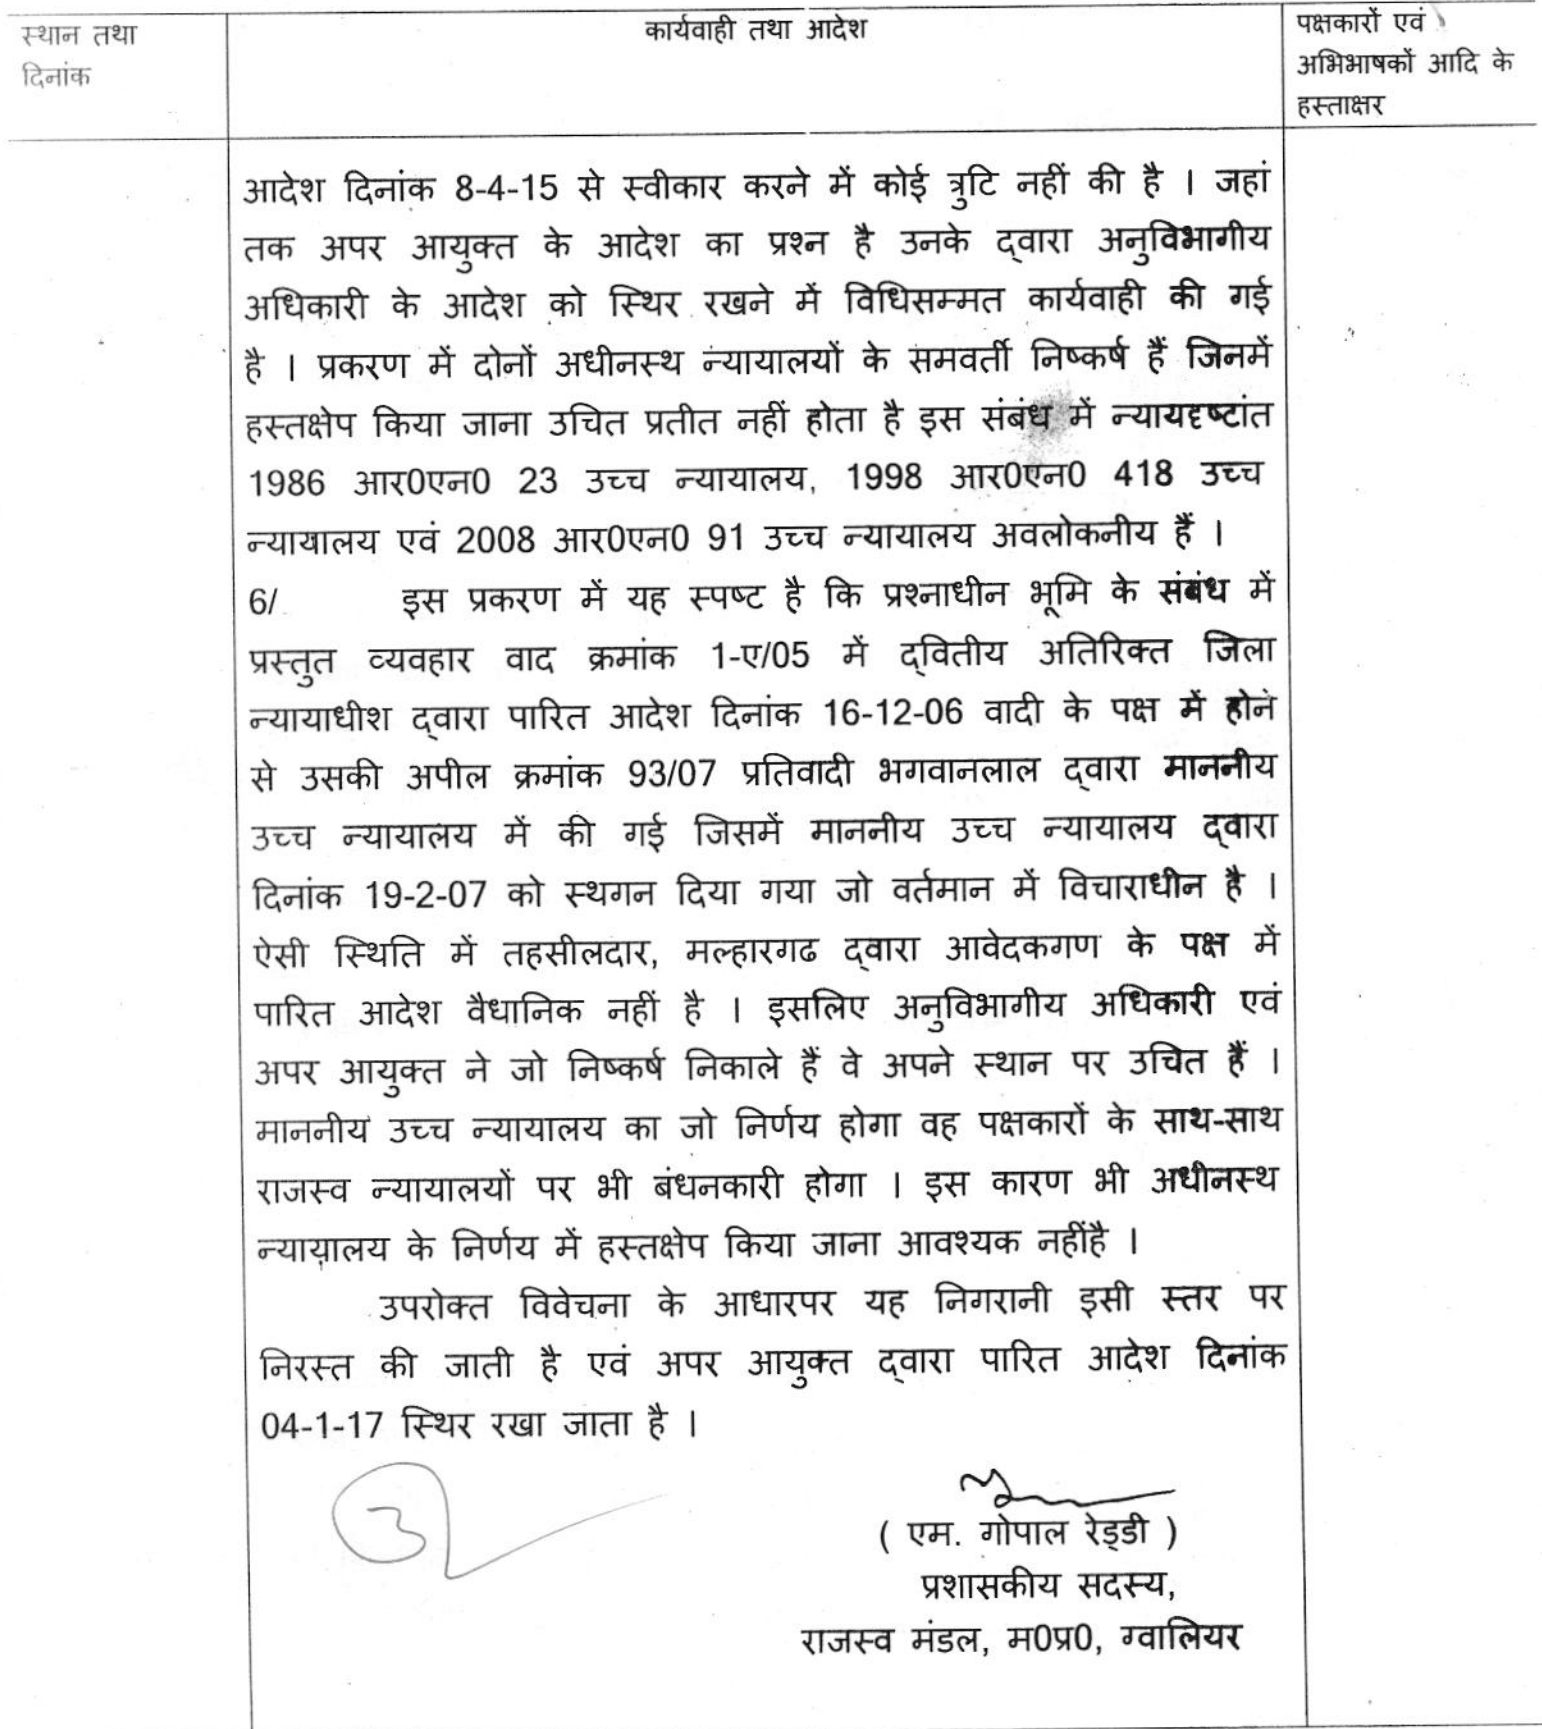 स्थान तथा
दिनांक
कार्यवाही तथा आदेश
पक्षकारों एवं
अभिभाषकों आदि के
हस्ताक्षर
आदेश दिनांक 8-4-15 से स्वीकार करने में कोई त्रुटि नहीं की है । जहां
तक अपर आयुक्त के आदेश का प्रश्न है उनके द्वारा अनुविभागीय
अधिकारी के आदेश को स्थिर रखने में विधिसम्मत कार्यवाही की गई
है । प्रकरण में दोनों अधीनस्थ न्यायालयों के समवर्ती निष्कर्ष हैं जिनमें
हस्तक्षेप किया जाना उचित प्रतीत नहीं होता है इस संबंध में न्यायदृष्टांत
1986 आर0एन0 23 उच्च न्यायालय, 1998 आर0एन0 418 उच्च
न्यायालय एवं 2008 आर0एन0 91 उच्च न्यायालय अवलोकनीय हैं ।
6/ इस प्रकरण में यह स्पष्ट है कि प्रश्नाधीन भूमि के संबंध में
प्रस्तुत व्यवहार वाद क्रमांक 1-ए/05 में द्वितीय अतिरिक्त जिला
न्यायाधीश द्वारा पारित आदेश दिनांक 16-12-06 वादी के पक्ष में होने
से उसकी अपील क्रमांक 93/07 प्रतिवादी भगवानलाल द्वारा माननीय
उच्च न्यायालय में की गई जिसमें माननीय उच्च न्यायालय द्वारा
दिनांक 19-2-07 को स्थगन दिया गया जो वर्तमान में विचाराधीन है ।
ऐसी स्थिति में तहसीलदार, मल्हारगढ द्वारा आवेदकगण के पक्ष में
पारित आदेश वैधानिक नहीं है । इसलिए अनुविभागीय अधिकारी एवं
अपर आयुक्त ने जो निष्कर्ष निकाले हैं वे अपने स्थान पर उचित हैं ।
माननीय उच्च न्यायालय का जो निर्णय होगा वह पक्षकारों के साथ-साथ
राजस्व न्यायालयों पर भी बंधनकारी होगा । इस कारण भी अधीनस्थ
न्यायालय के निर्णय में हस्तक्षेप किया जाना आवश्यक नहींहै ।
उपरोक्त विवेचना के आधारपर यह निगरानी इसी स्तर पर
निरस्त की जाती है एवं अपर आयुक्त द्वारा पारित आदेश दिनांक
04-1-17 स्थिर रखा जाता है ।
( एम. गोपाल रेड्डी )
प्रशासकीय सदस्य,
राजस्व मंडल, म0प्र0, ग्वालियर